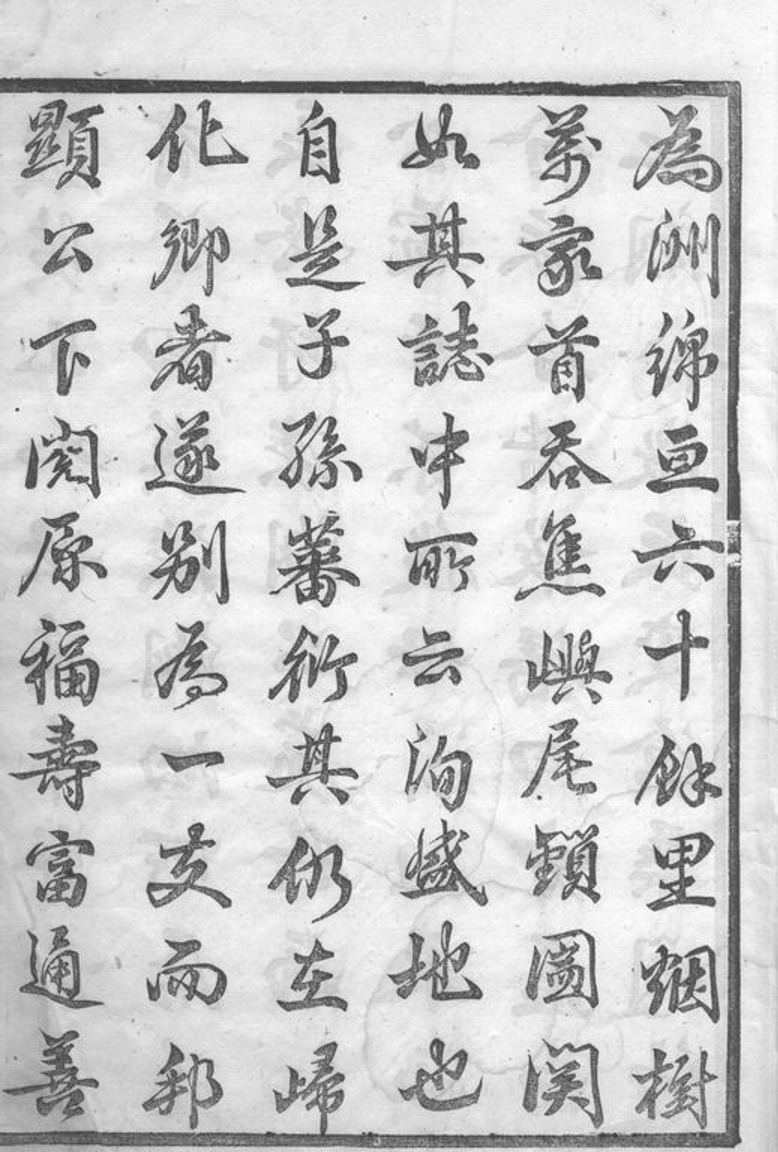 為洲綿亘六十餘里烟樹
萬家首吞焦嶼尾鎖圌関
如其誌中所云洵盛地也
自是子孫蕃衍其仍在歸
化鄉者遂别為一支而邦
顕公下閎原福壽富通善